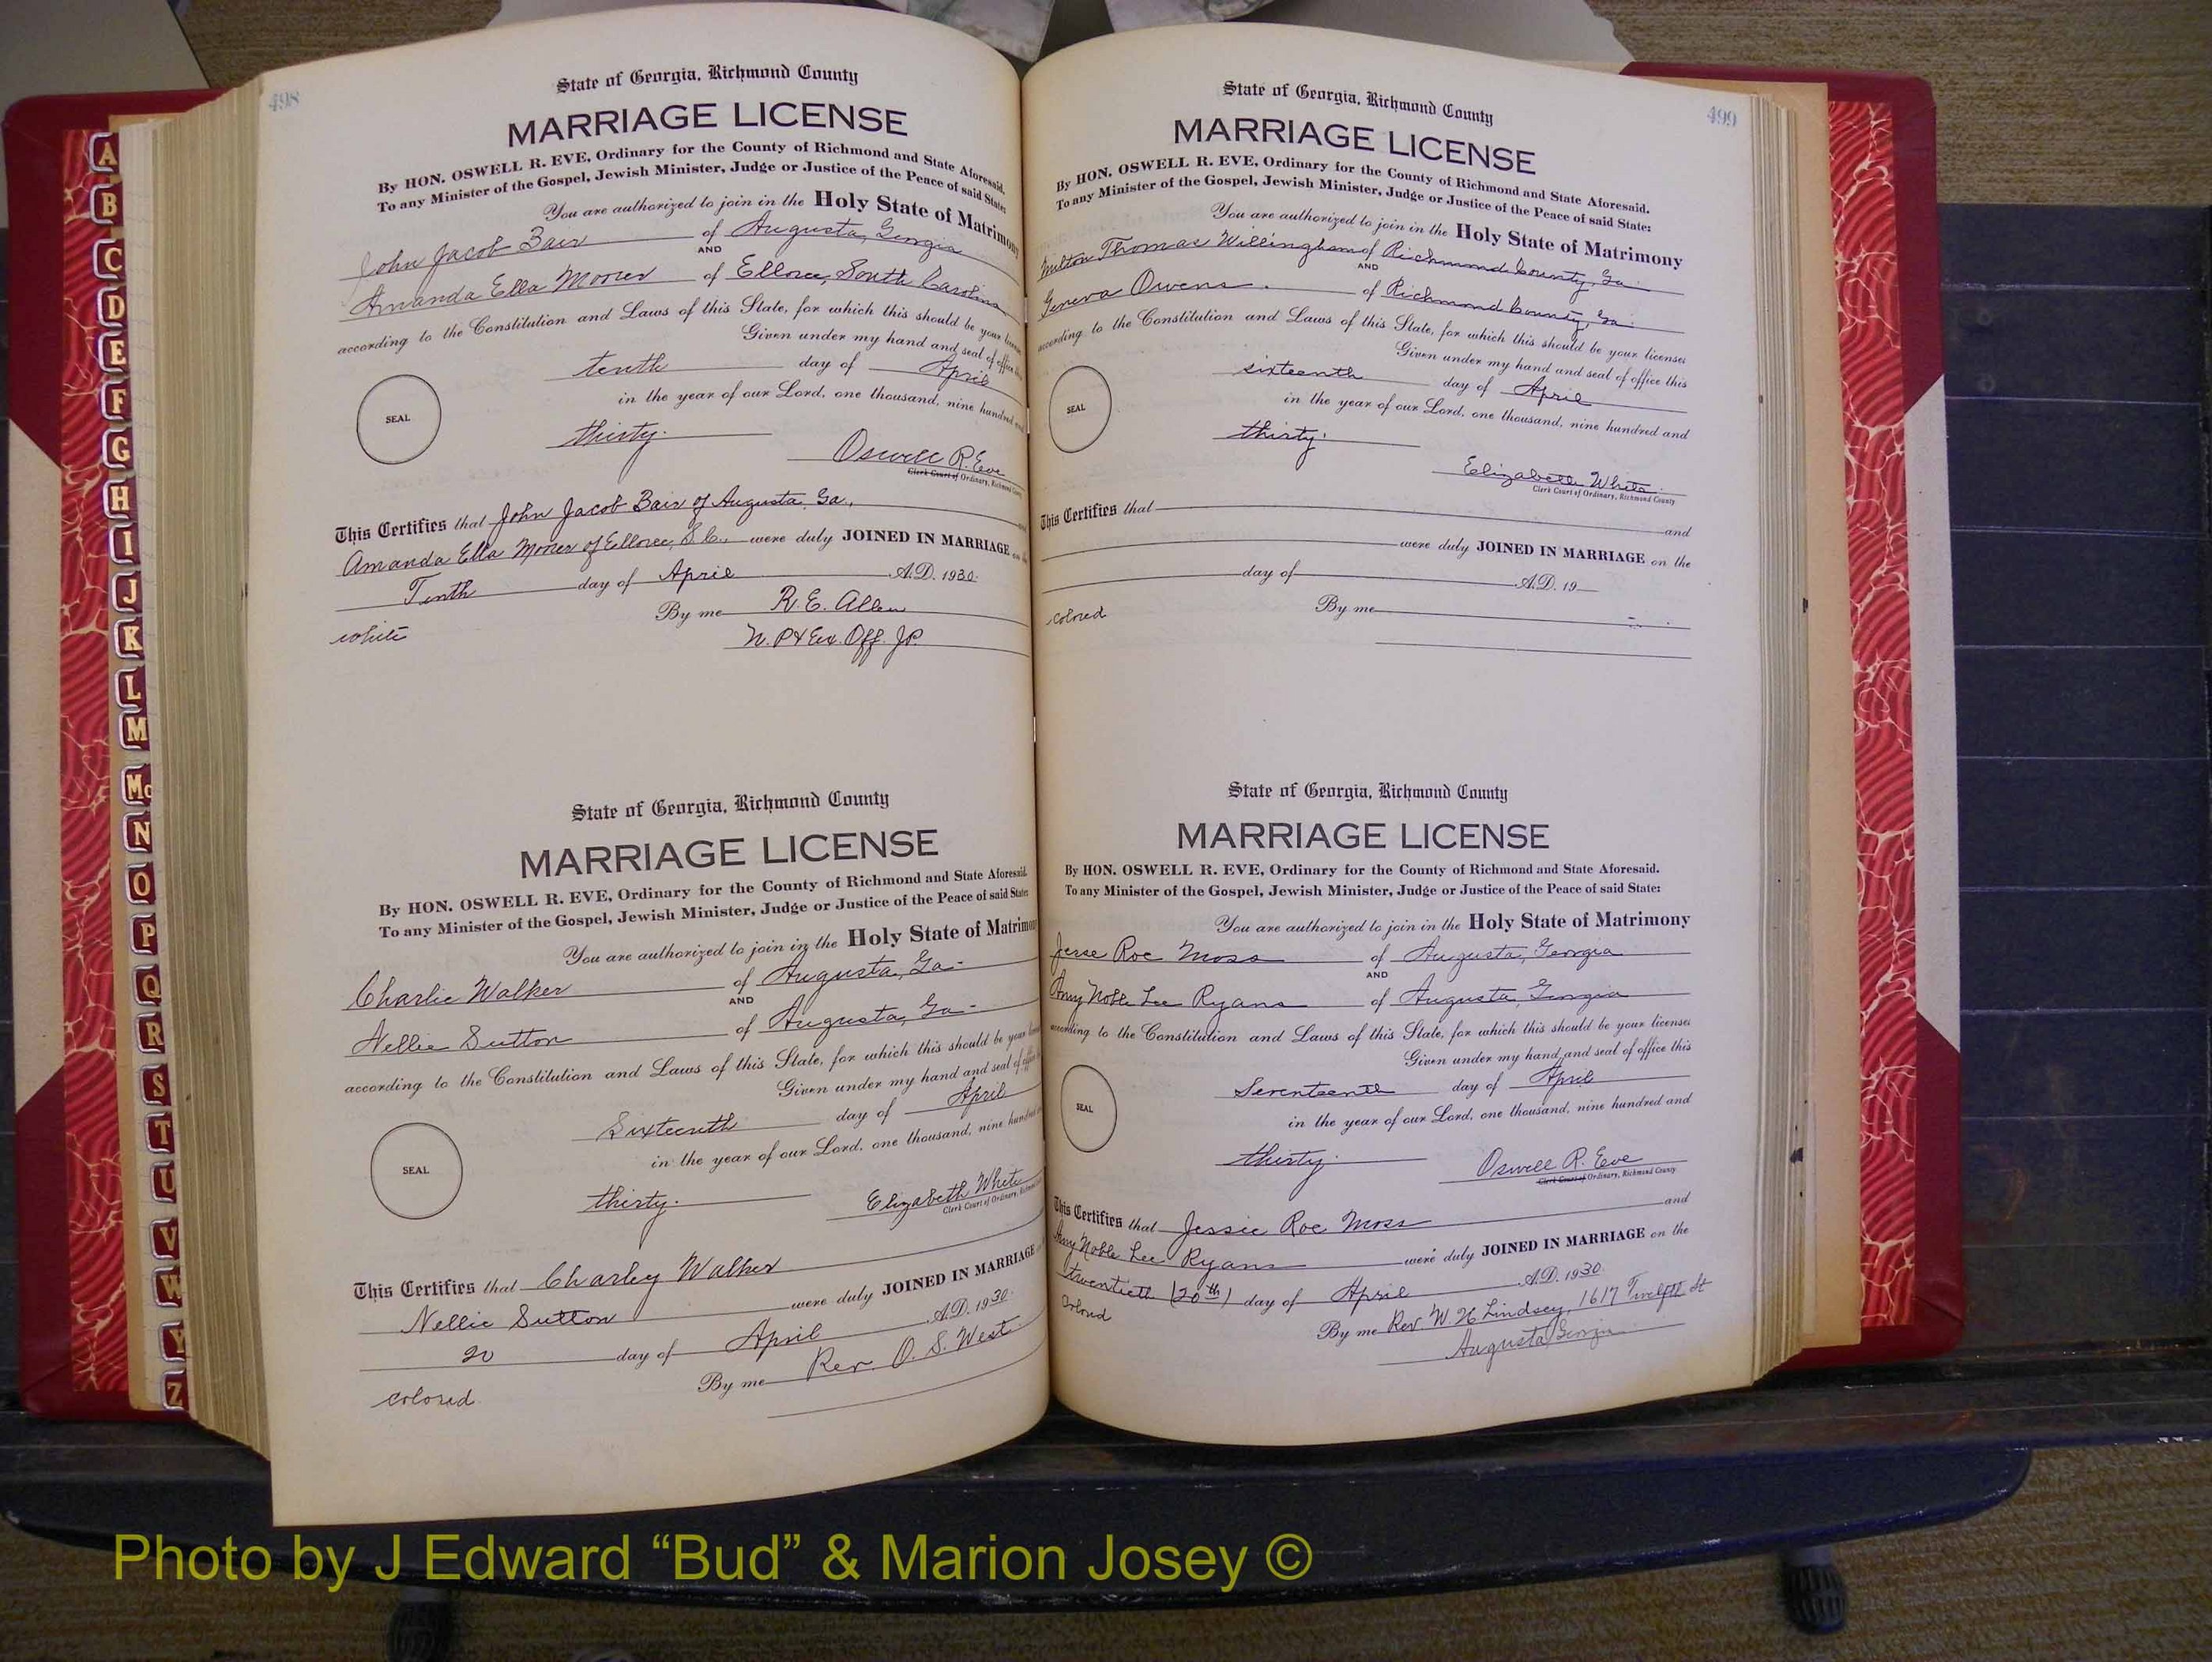 A
B
C
D
E
F
G
H
I
J
K
L
M
Mc
N
O
P
Q
R
S
T
U
V
W
Y
Z
498
State of Georgia, Richmond County
MARRIAGE LICENSE
By HON. OSWELL R. EVE, Ordinary for the County of Richmond and State Aforesaid.
To any Minister of the Gospel, Jewish Minister, Judge or Justice of the Peace of said State:
You are authorized to join in the Holy State of Matrimony
John Jacob Bair of Augusta, Georgia
AND
Amanda Ella Moorer of Elloree, South Carolina
according to the Constitution and Laws of this State, for which this should be your
Given under my hand and seal of office
tenth day of April
in the year of our Lord, one thousand, nine hundred
SEAL
thirty.
Oswell R. Eve
Clerk Court of Ordinary, Richmond County
This Certifies that John Jacob Bair of Augusta, Ga.,
Amanda Ella Moorer of Elloree, S.C., were duly JOINED IN MARRIAGE on
Tenth day of April A.D. 1930.
By me R. E. Allen
white N. P. & Ex. Off. J.P.
State of Georgia, Richmond County
MARRIAGE LICENSE
By HON. OSWELL R. EVE, Ordinary for the County of Richmond and State Aforesaid.
To any Minister of the Gospel, Jewish Minister, Judge or Justice of the Peace of said State:
You are authorized to join in the Holy State of Matrimony
Charlie Walker of Augusta, Ga-
AND
Nellie Sutton of Augusta, Ga-
according to the Constitution and Laws of this State, for which this should be your
Given under my hand and seal of office
Sixteenth day of April
in the year of our Lord, one thousand, nine hundred
SEAL
thirty.
Elizabeth White
Clerk Court of Ordinary, Richmond
This Certifies that Charley Walker
Nellie Sutton were duly JOINED IN MARRIAGE
20 day of April A.D. 1930.
By me Rev. O. S. West
colored
499
State of Georgia, Richmond County
MARRIAGE LICENSE
By HON. OSWELL R. EVE, Ordinary for the County of Richmond and State Aforesaid.
To any Minister of the Gospel, Jewish Minister, Judge or Justice of the Peace of said State:
You are authorized to join in the Holy State of Matrimony
Milton Thomas Willingham of Richmond County, Ga.
AND
Geneva Owens. of Richmond County, Ga.
according to the Constitution and Laws of this State, for which this should be your licenses
Given under my hand and seal of office this
sixteenth day of April
in the year of our Lord, one thousand, nine hundred and
SEAL
thirty.
Elizabeth White.
Clerk Court of Ordinary, Richmond County
This Certifies that and
were duly JOINED IN MARRIAGE on the
day of A.D. 19
colored By me
State of Georgia, Richmond County
MARRIAGE LICENSE
By HON. OSWELL R. EVE, Ordinary for the County of Richmond and State Aforesaid.
To any Minister of the Gospel, Jewish Minister, Judge or Justice of the Peace of said State:
You are authorized to join in the Holy State of Matrimony
Jesse Roe Moss of Augusta, Georgia
AND
Amy Noble Lee Ryans of Augusta, Georgia
according to the Constitution and Laws of this State, for which this should be your licenses
Given under my hand and seal of office this
Seventeenth day of April
in the year of our Lord, one thousand, nine hundred and
SEAL
thirty.
Oswell R. Eve
Clerk Court of Ordinary, Richmond County
This Certifies that Jessie Roe Moss and
Amy Noble Lee Ryans were duly JOINED IN MARRIAGE on the
twentieth (20th) day of April A.D. 1930.
Colored By me Rev. W. H. Lindsey, 1617 Twelfth St
Augusta, Georgia
Photo by J Edward “Bud” & Marion Josey ©